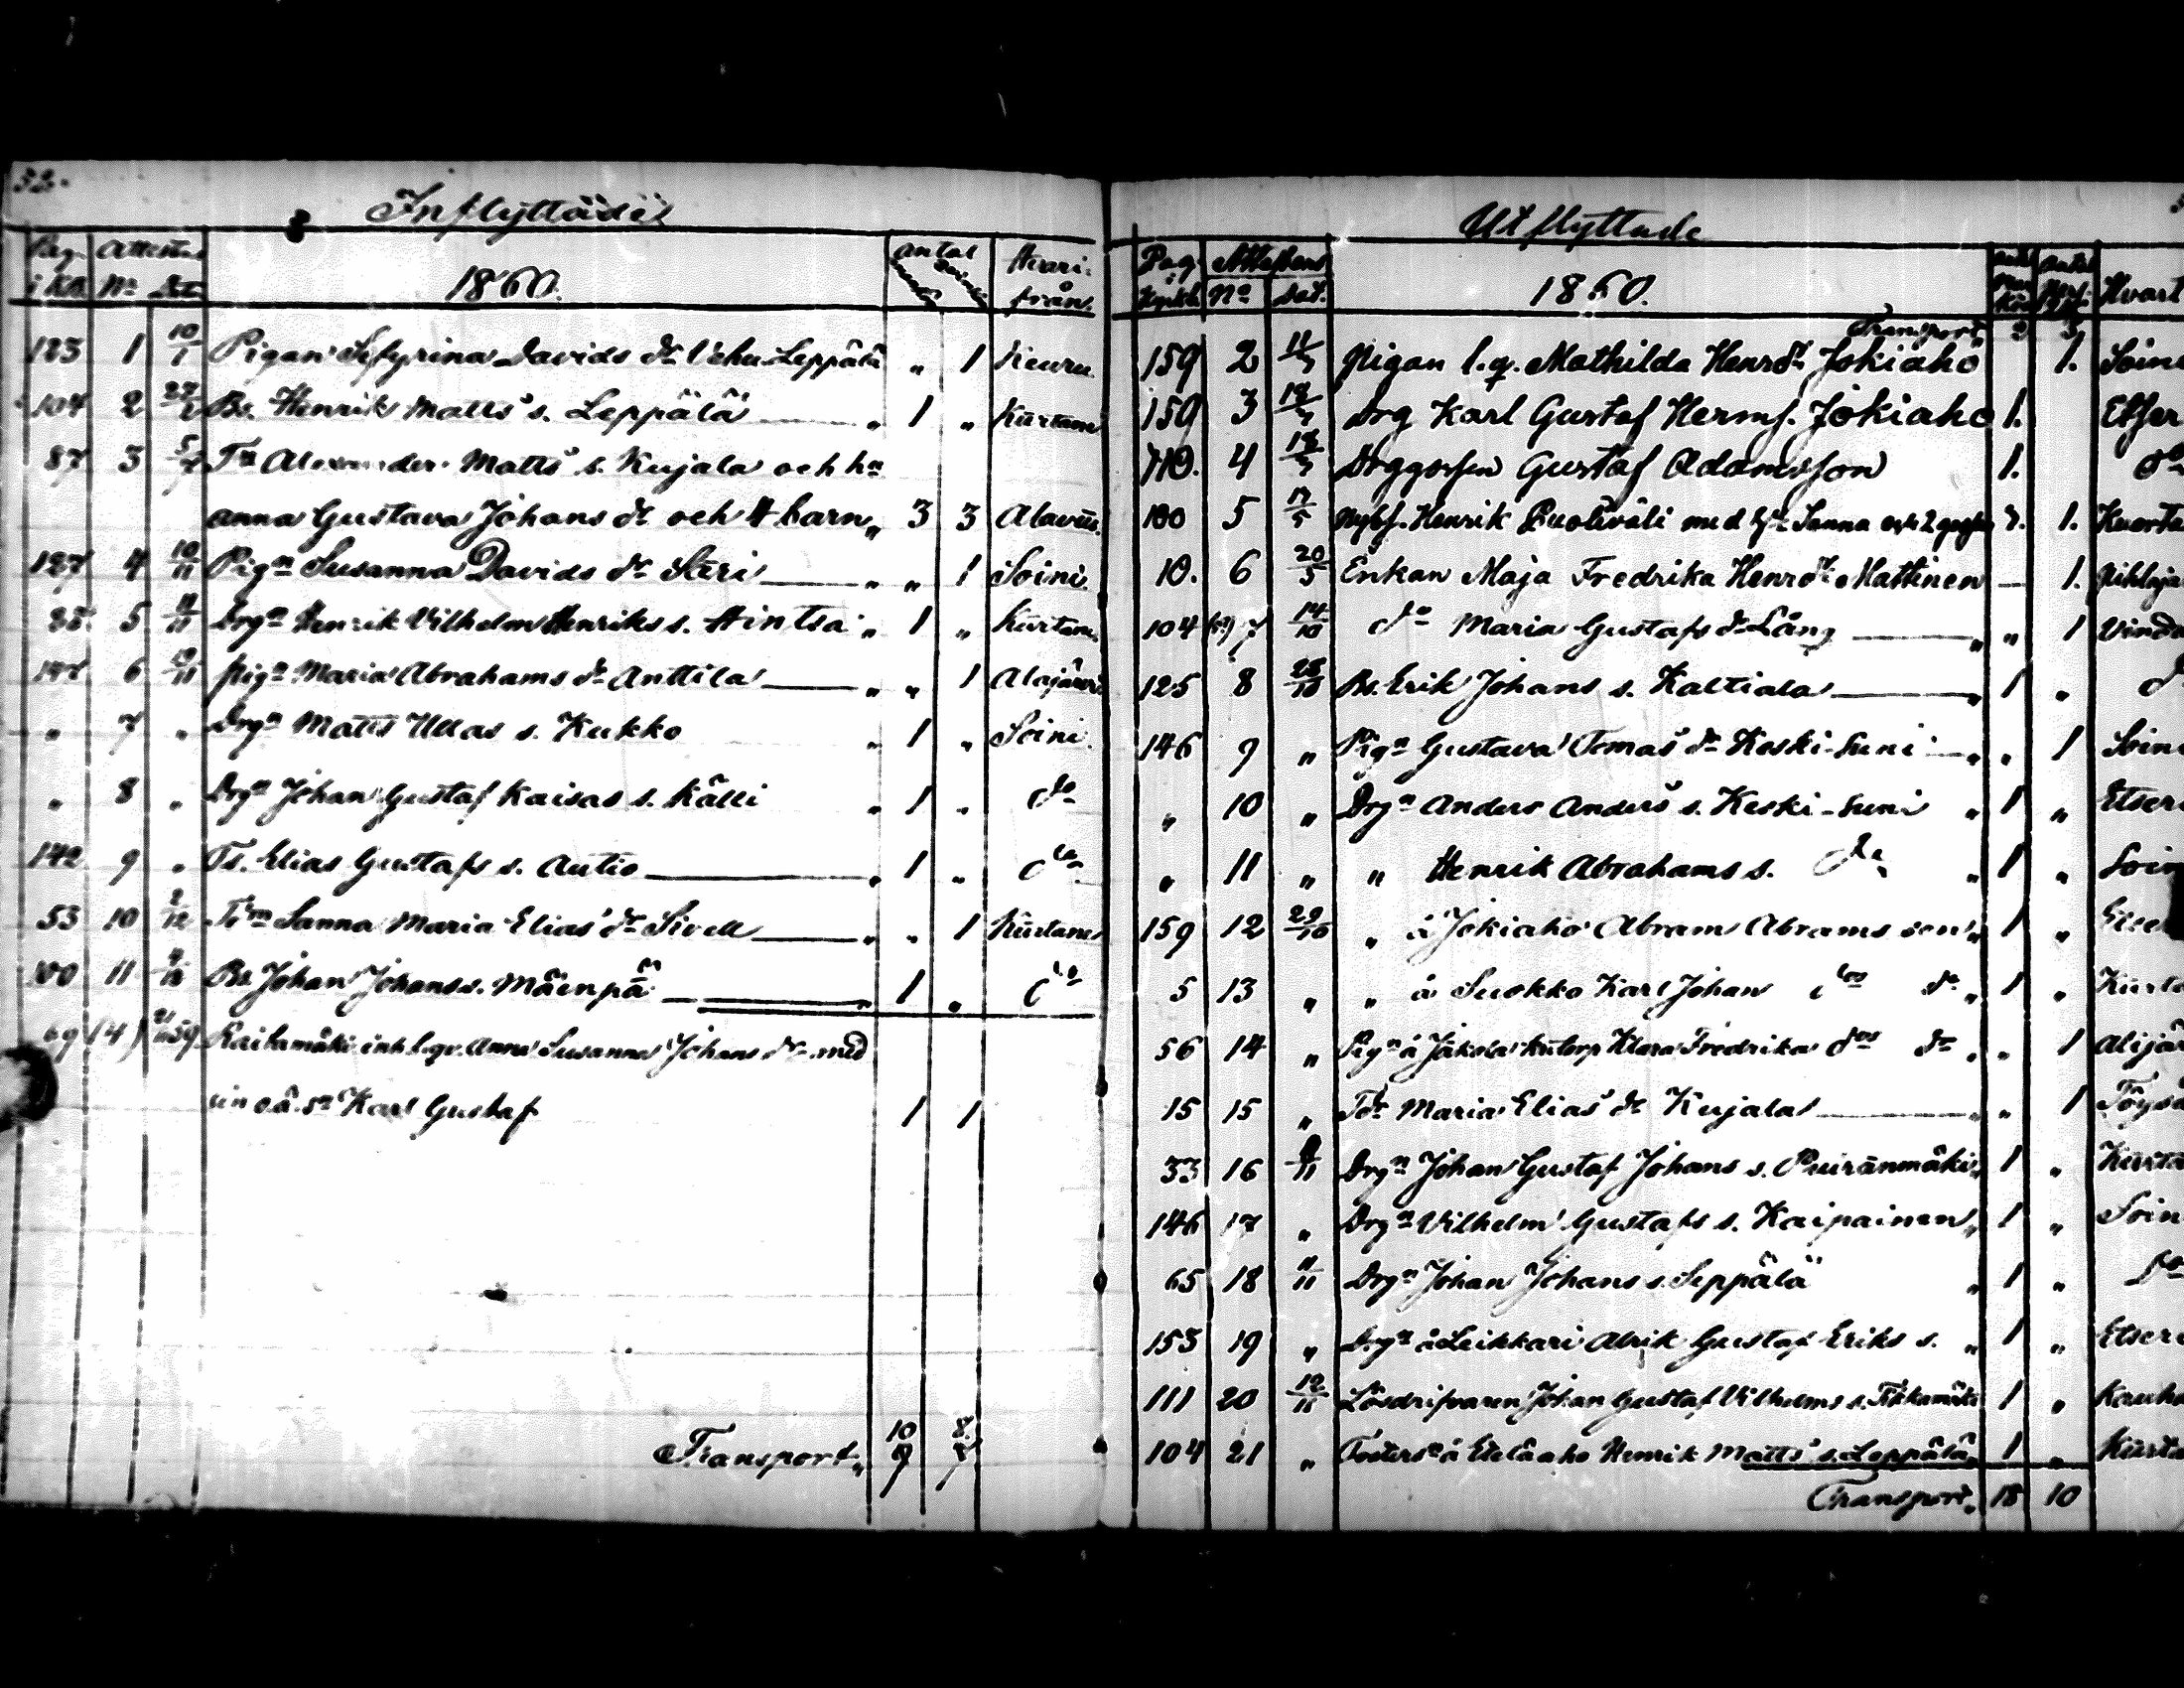 32.
Inflyttade
Pag. i Kb. Attesta No Dat. 1860. antal Hvarifrån.
123 1 10/1 Pigan Sefyrina Davids dr Vehu-Leppälä „ 1 Keuru
104 2 27/2 Bs. Henrik Matts s. Leppälä „ 1 „ Kürtane
87 3 5/7 Tn Alexander Matts s. Kujala och hu
Anna Gustava Johans dr och 4 barn „ 3 3 Alavus.
127 4 10/11 Pign Susanna Davids dr Säri „ „ 1 Soini
88 5 11/11 Drgn Henrik Vilhelm Henriks s. Hintsa „ 1 „ Kürtane
147 6 19/11 Pign Maria Abrahams dr Anttila „ „ 1 Alajärvi
„ 7 „ Drgn Matts Ullas s. Kukko „ 1 „ Soini
„ 8 „ Drgn Johan Gustaf Kaisas s. Källi „ 1 „ do
142 9 „ Ts. Elias Gustafs s. Autio „ 1 „ do
53 10 2/12 Sanna Maria Elias dr Sivell „ „ 1 Kürtane
100 11 Bs. Johan Johans s. Mäenpä „ 1 „ do
69 (4) Railamäki inh. l.qv. Anna Susanna Johans dr med
sin o.ä. sn Karl Gustaf 1 1
Transport „ 10 8
Utflyttade
Pag. Attestens No Dat. 1860. antal antal Hvart
Transport 3
159 2 Pigan l.q. Mathilda Henrdr Jokiaho 1. Soin
159 3 Drg Karl Gustaf Herms. Jokiaho 1. Etser
110. 4 Drggossen Gustaf Adamsson 1. do
100 5 17/5 Nybs. Henrik Puoliväli med Sanna och 2 1. Kuorta
10. 6 20/5 Enkan Maja Fredrika Henrdr Mattinen — 1. Pihlaja
104 7 14/10 do Maria Gustafs dr Lång „ „ 1 Vinda
125 8 28/10 Bs. Erik Johans s. Kaltiala „ 1 „ d
146 9 „ Pign Gustava Tomas dr Koski-Suni „ „ 1 Soin
„ 10 „ Drgn Anders Anders s. Keski-Suni „ 1 „ Etser
„ 11 „ „ Henrik Abrahams s. do „ 1 „ Soin
159 12 29/10 „ å Jokiaho Abram Abrams son „ 1 „ Etse
5 13 „ „ å Suokko Karl Johan dos do „ 1 „ Kürta
56 14 „ Pign å Jäkola Klara Fredrika dos dr „ „ 1 Alajär
15 15 „ Tdr Maria Elias dr Kujala „ „ 1 Töysä
33 16 Drgn Johan Gustaf Johans s. Puiranmäki „ 1 „ Kürta
146 17 „ Drgn Vilhelm Gustafs s. Kaipainen „ 1 „ Soin
65 18 11/11 Drgn Johan Johans s. Seppälä „ 1 „ do
153 19 „ Drgn å Leikkari Alrik Gustaf Eriks s. „ 1 „ Etser
111 20 Lösdrifvaren Johan Gustaf Vilhelms s. Tikkamäki 1 „ Kauha
104 21 „ Fosters. å Eteläaho Henrik Matts s. Leppälä „ 1 „ Kürt
Transport „ 18 10